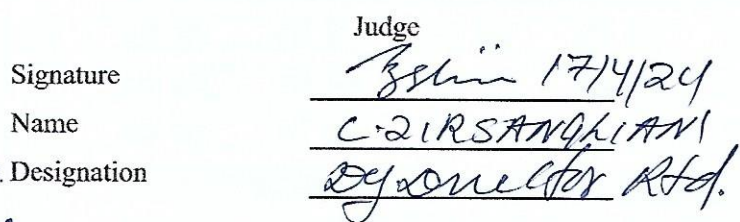 Judge
Signature 17/4/24
Name C. ZIRSANGLIANI
Designation Dy Director Rtd.